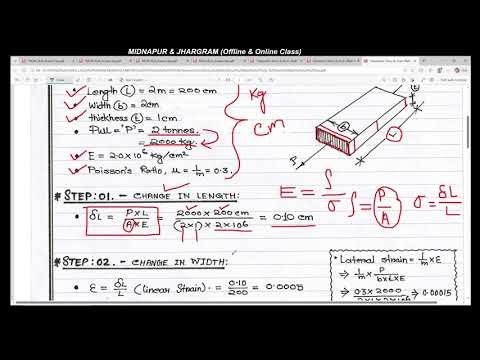 MIDNAPUR & JHARGRAM (Offline & Online Class)
• Length (L) = 2m = 200 cm
• Width (b) = 2cm
• thickness (t) = 1cm
• Pull = 'P' = 2 tonnes.
= 2000 kg
• E = 2.0×10⁶ kg/cm²
• Poisson's Ratio, μ = 1/m = 0.3.
kg
cm
b
t
L
P
# STEP:01. - CHANGE IN LENGTH:
• δL = P×L / A×E = 2000×200 cm / (2×1)×2×106 = 0.10 cm
E = f/σ
f = P/A
σ = δL/L
# STEP:02. - CHANGE IN WIDTH:
• ε = δL/L (linear strain) = 0.10/200 = 0.0005
• Lateral strain = 1/m × E
⇒ 1/m × P/b×t×E
⇒ 0.3×2000 / 2×1×2×10⁶ ⇒ 0.00015